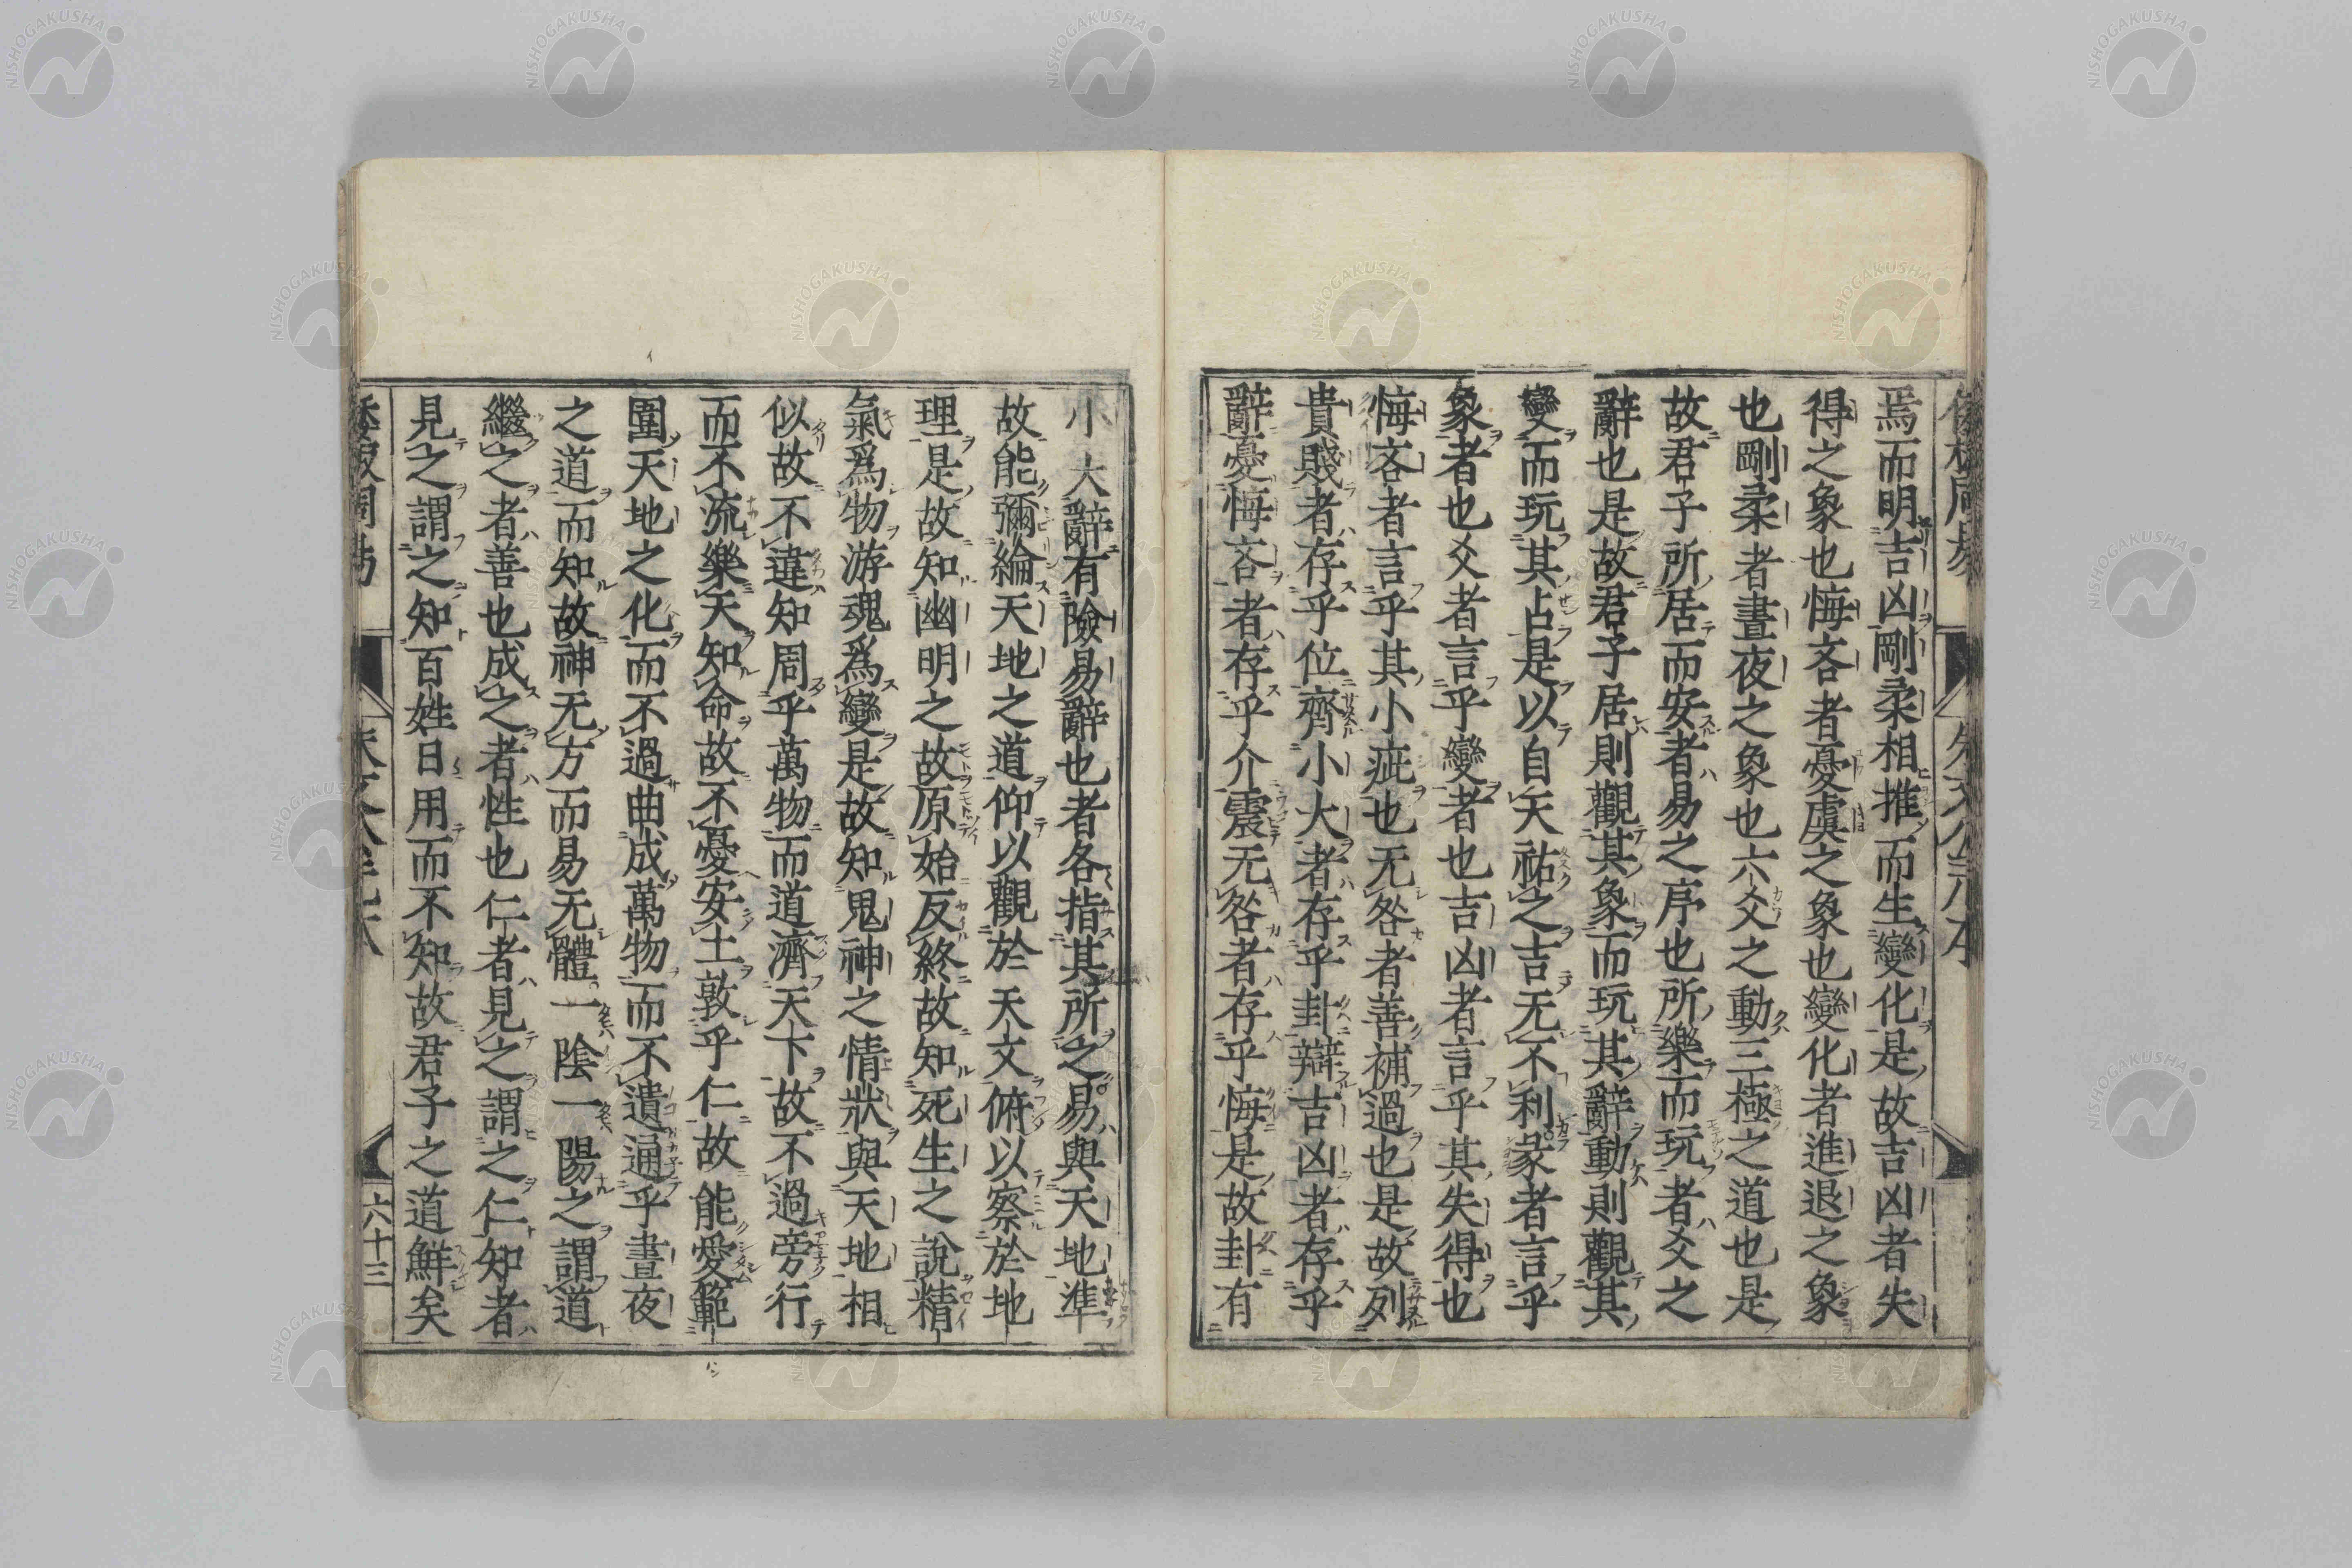 焉而明吉凶剛柔相推而生變化是故吉凶者失
得之象也悔吝者憂虞之象也變化者進退之象
也剛柔者晝夜之象也六爻之動三極之道也是
故君子所居而安者易之序也所樂而玩者爻之
辭也是故君子居則觀其象而玩其辭動則觀其
變而玩其占是以自天祐之吉无不利彖者言乎
象者也爻者言乎變者也吉凶者言乎其失得也
悔吝者言乎其小疵也无咎者善補過也是故列
貴賤者存乎位齊小大者存乎卦辯吉凶者存乎
辭憂悔吝者存乎介震无咎者存乎悔是故卦有
小大辭有險易辭也者各指其所之易與天地準
故能彌綸天地之道仰以觀於天文俯以察於地
理是故知幽明之故原始反終故知死生之說精
氣爲物游魂爲變是故知鬼神之情狀與天地相
似故不違知周乎萬物而道濟天下故不過旁行
而不流樂天知命故不憂安土敦乎仁故能愛範
圍天地之化而不過曲成萬物而不遺通乎晝夜
之道而知故神无方而易无體一陰一陽之謂道
繼之者善也成之者性也仁者見之謂之仁知者
見之謂之知百姓日用而不知故君子之道鮮矣
六十三
NISHOGAKUSHA